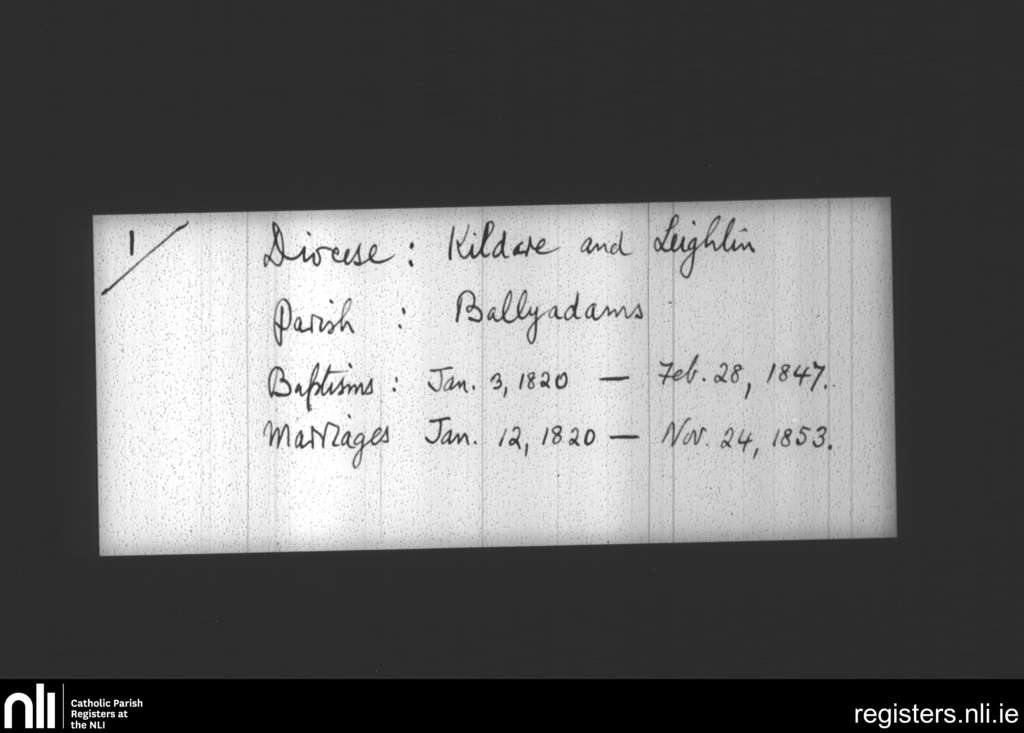 1/
Diocese : Kildare and Leighlin
Parish : Ballyadams
Baptisms : Jan. 3, 1820 — Feb. 28, 1847.
Marriages Jan. 12, 1820 — Nov. 24, 1853.
nli
Catholic Parish
Registers at
the NLI
registers.nli.ie